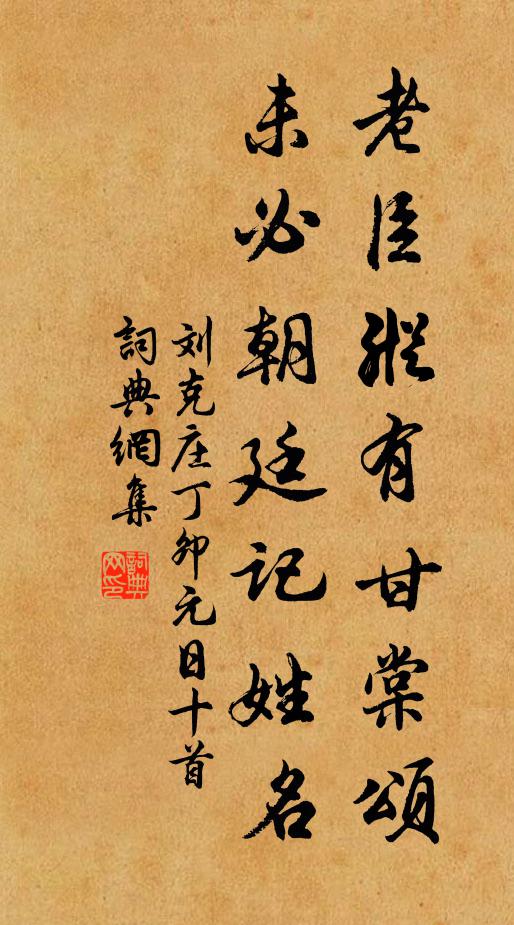 老臣縱有甘棠頌
未必朝廷記姓名
刘克庄丁卯元日十首
詞典網集
詞典網印